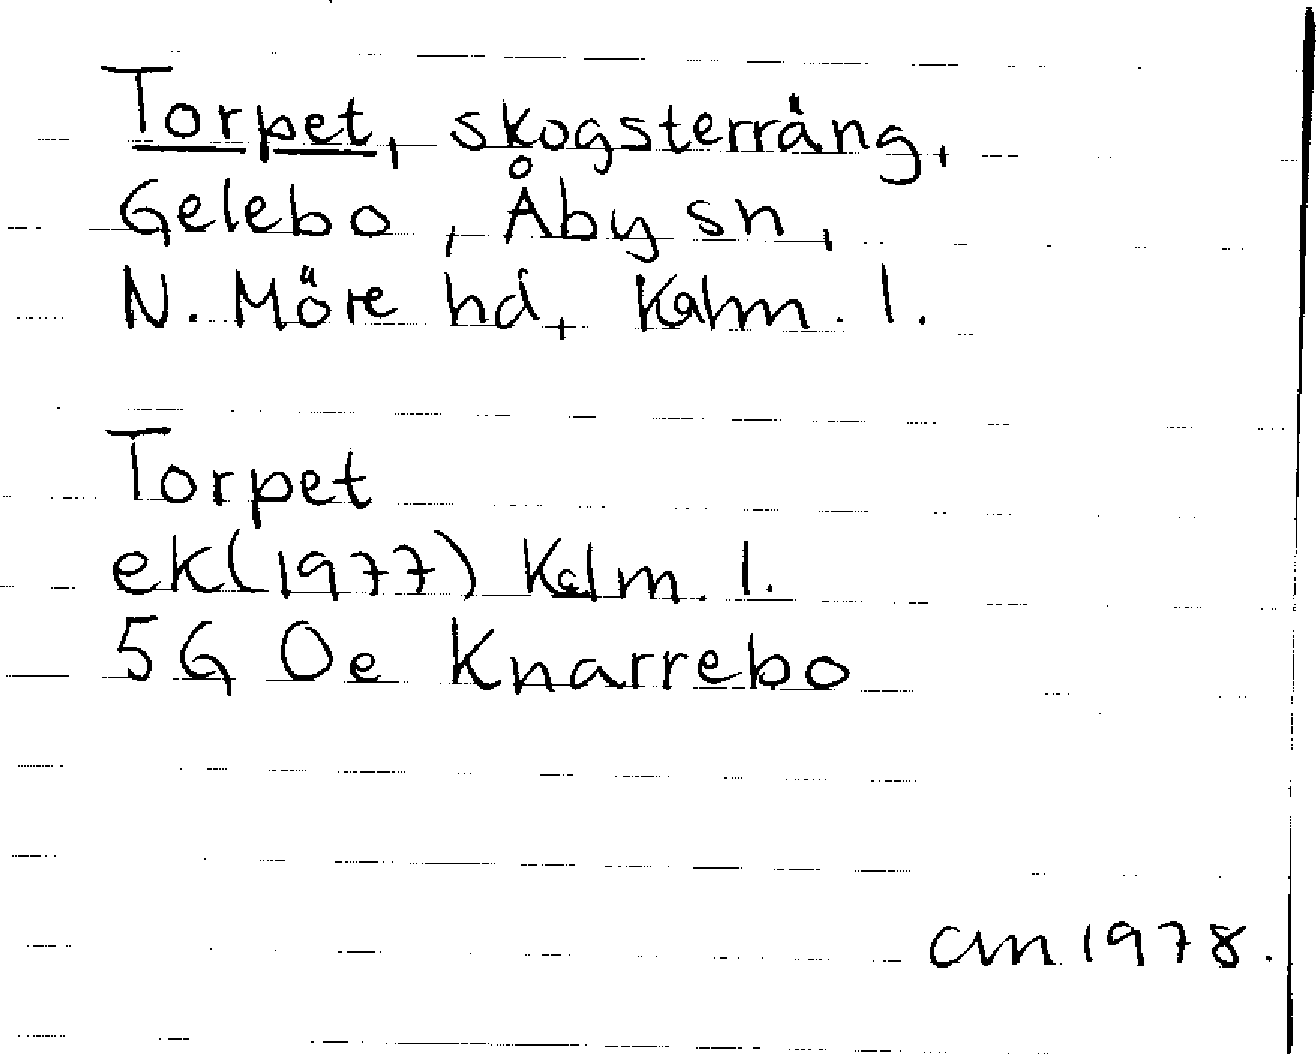 Torpet, skogsterräng,
Gelebo, Åby sn,
N. Möre hd, Kalm. l.
Torpet
ek(1977) Kalm. l.
5G 0e Knarrebo
cm 1978.